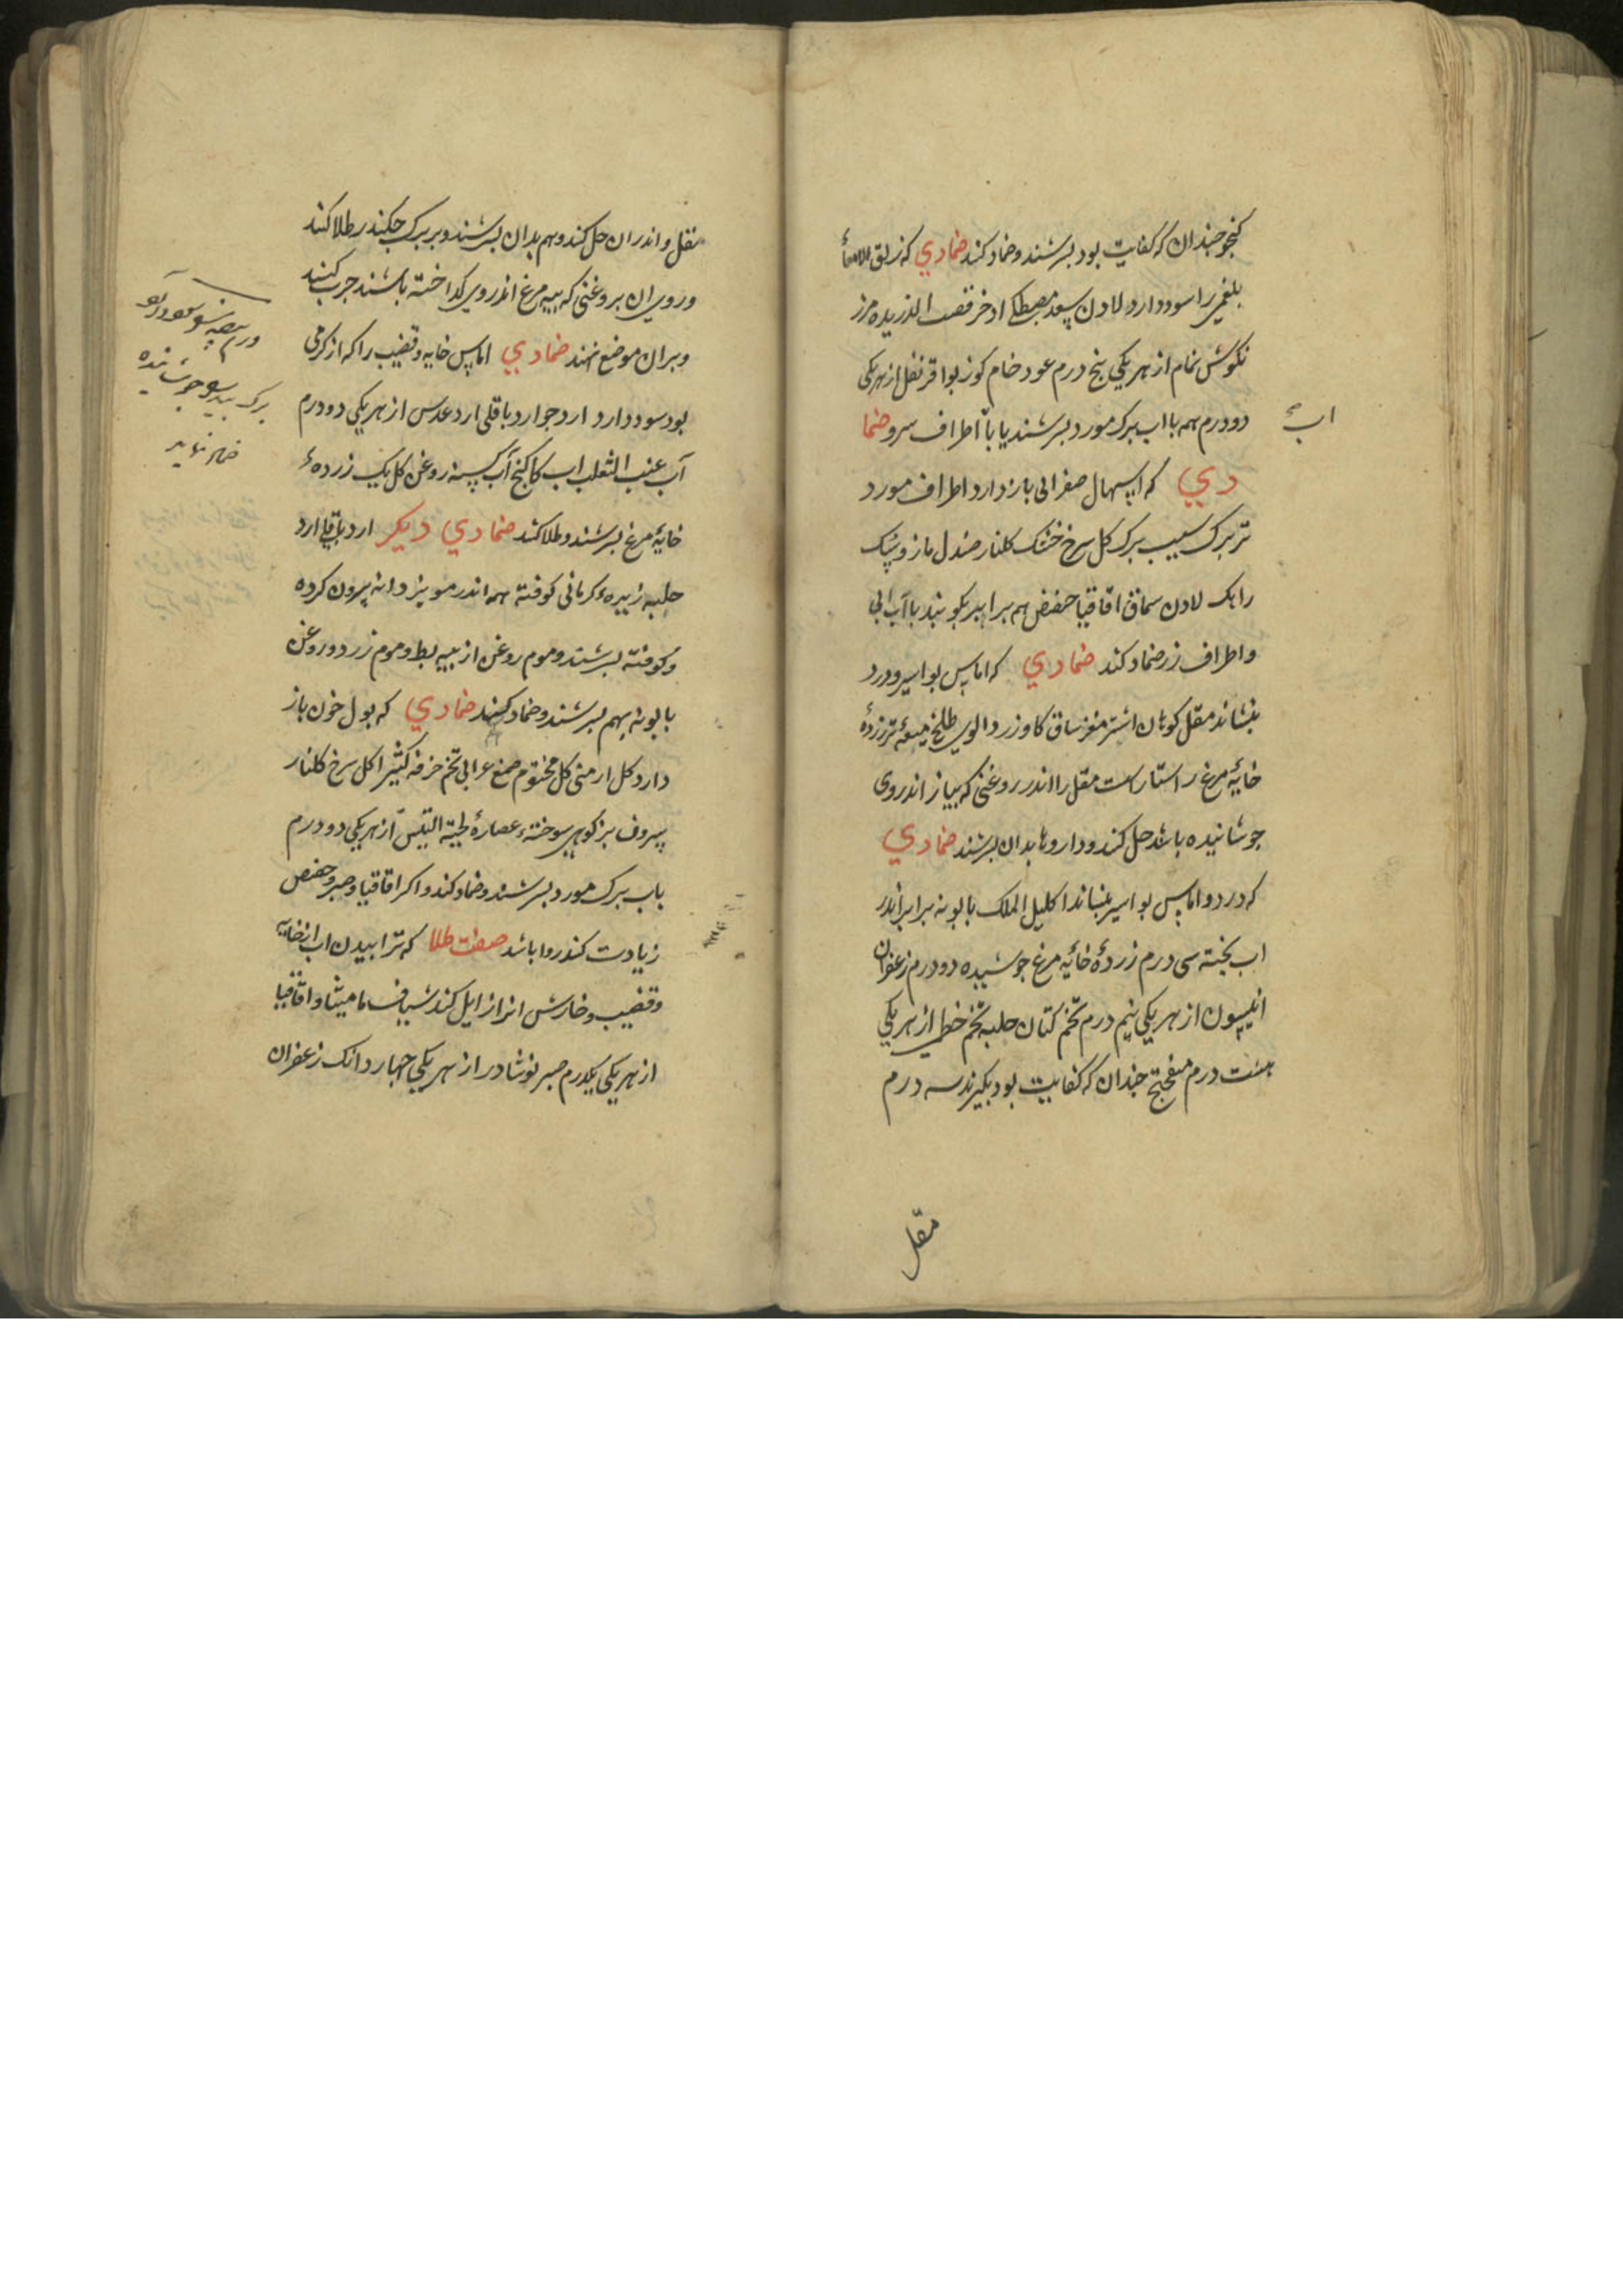 کنجد چندان که کفایت بود بسرشند و ضماد کند ضمادي که زلق الامعاء
بلغمی را سود دارد لادن سعد مصطکی اذخر قصب الذریره مرز
نکوش نمام از هر یکی پنج درم عود خام کوز بوا قرنفل از هر یکی
دو درم همه با اب برک مورد بسرشند یا باب اطراف سرو ضما
دي که اسهال صفرائی باز دارد اطراف مورد
تر برک سیب برک کل سرخ خشک کلنار صندل مازو سک
رامک لادن سماق اقاقیا حضض همه برابر بکوبند با آب ابی
و اطراف زر ضماد کند ضمادي که اماس بواسیر و درد
بنشاند مقل کوهان اشتر مغز ساق کاو زرد الوی طلخ میعهٔ تر زردهٔ
خایهٔ مرغ راستاراست مقل را اندر روغنی که پیاز اندروی
جوشانیده باشد حل کند و داروها بدان بسرشند ضمادي
که درد و اماس بواسیر بنشاند اکلیل الملک بابونه برابر اندر
اب پخته سی درم زردهٔ خائیه مرغ جوشیده دو درم زعفران
افیون از هر یکی نیم درم تخم کتان حلبه تخم خطمی از هر یکی
هشت درم میفختج چندان که کفایت بود بکیرند سه درم
اب
مقل
مقل و اندران حل کند و همه بدان بسرشند و بر برک چکندر طلا کند
و روی ان بروغنی که پیه مرغ اندروی کداخته باشند چرب کنند
و بران موضع نهند ضمادي اماس خایه و قضیب را که از کرمی
بود سود دارد ارد جو ارد باقلی ارد عدس از هر یکی دو درم
آب عنب الثعلب اب کاکنج آب کسنه روغن کل یک زردهٔ
خایهٔ مرغ بسرشند و طلا کند ضمادي دیکر ارد باقلی ارد
حلبه زیرهٔ کرمانی کوفته همه اندر مویز دانه بیرون کرده
و کوفته بسرشند و موم روغن از پیه بط و موم زرد و روغن
بابونه بهم بسرشند و ضماد کنند ضمادي که بول خون باز
دارد کل ارمنی کل مختوم صمغ عرابی تخم خرفه کثیرا کل سرخ کلنار
سروی بز کوهی سوخته عصارهٔ لحیة التیس از هر یکی دو درم
باب برک مورد بسرشند و ضماد کند و اکر اقاقیا و صبر و حضض
زیادت کند روا باشد صفت طلا که ترابیدن اب از خایه
و قضیب و خارش انرا زایل کند شیاف مامیثا و اقاقیا
از هر یکی یکدرم صبر نوشادر از هر یکی چهار دانک زعفران
ورم بیضه
برک بید جوشانیده
ضماد نمایند